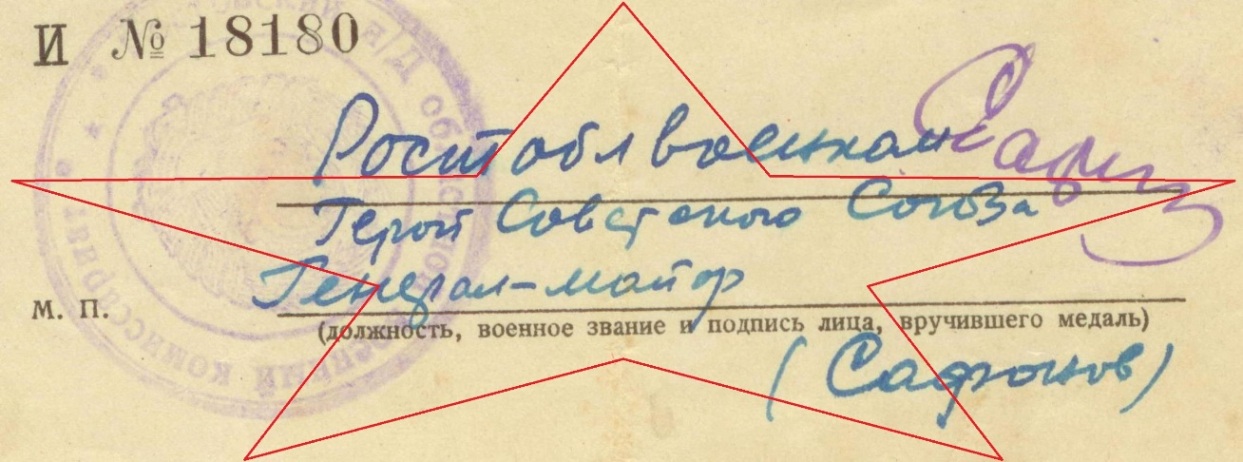 И № 18180
Ростоблвоенком
Герой Советского Союза
Генерал-майор
М. П.
(должность, военное звание и подпись лица, вручившего медаль)
(Сафронов)